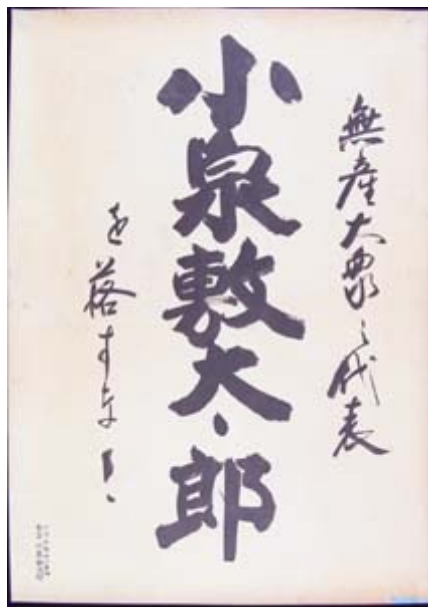 無産大衆之代表
小泉敷太郎
を落すな！